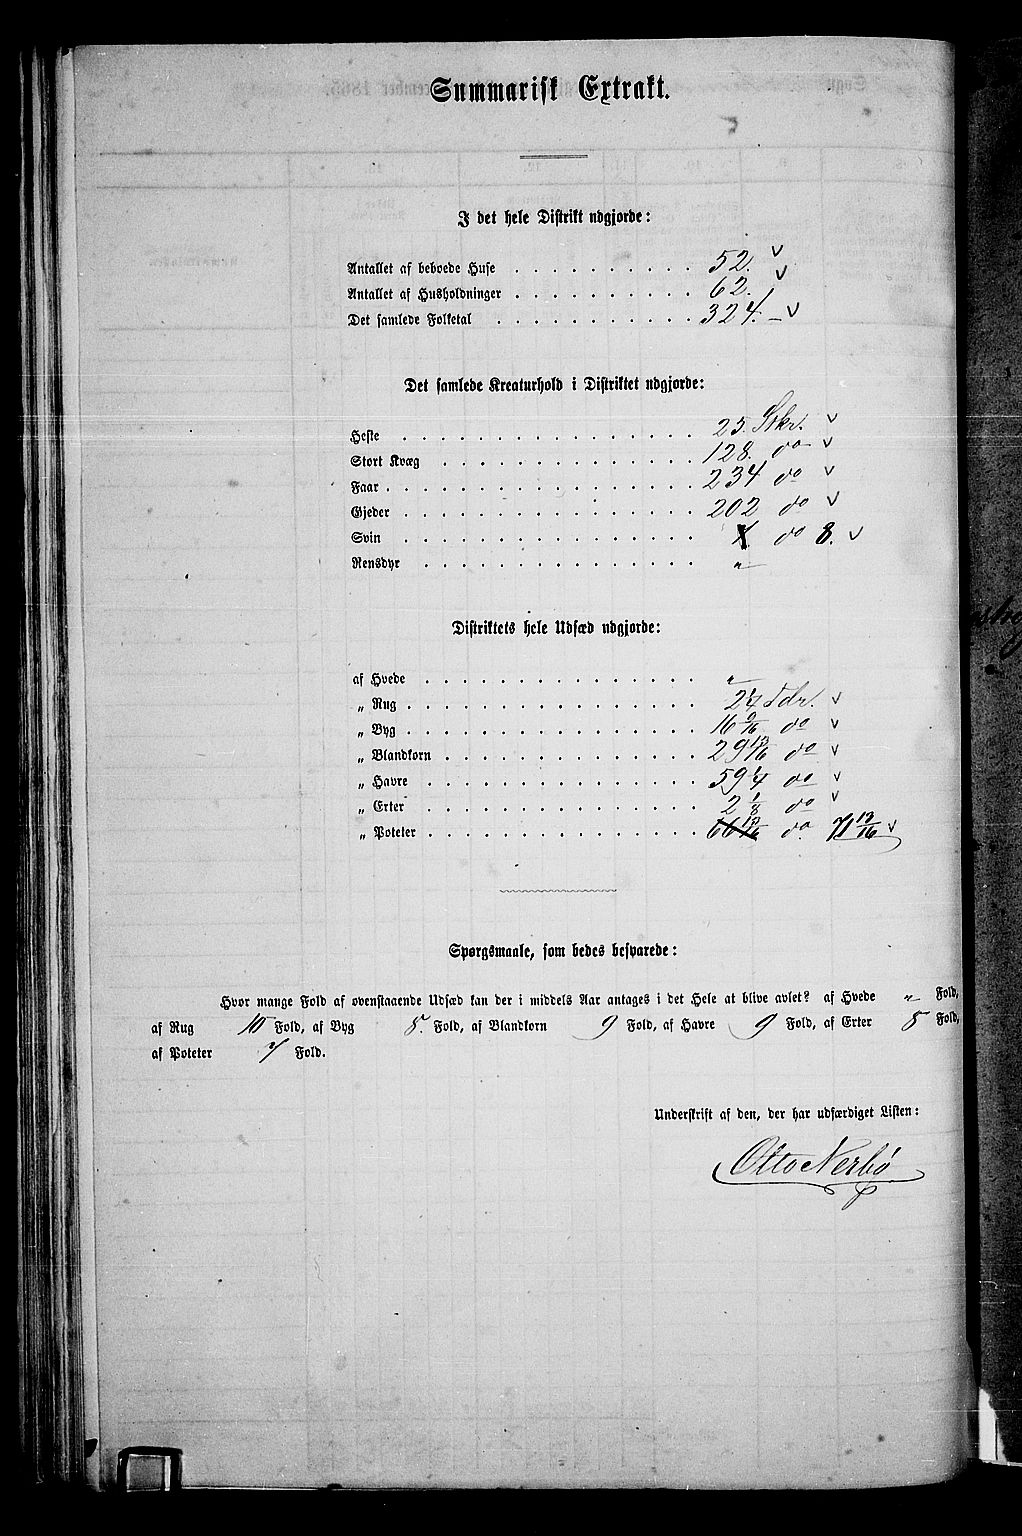 Summarisk Extrakt.
I det hele Distrikt udgjorde:
Antallet af beboede Huse . . . . . . . . . . 52. v
Antallet af Husholdninger . . . . . . . . . . 62. v
Det samlede Folketal . . . . . . . . . . . 324. – v
Det samlede Kreaturhold i Distriktet udgjorde:
Heste . . . . . . . . . . . . . . . . 25. Stkr. v
Stort Kvæg . . . . . . . . . . . . . . 128. do v
Faar . . . . . . . . . . . . . . . . . 234 do v
Gjeder . . . . . . . . . . . . . . . . 202 do v
Svin . . . . . . . . . . . . . . . . do 8. v
Rensdyr . . . . . . . . . . . . . . . "
Distriktets hele Udsæd udgjorde:
af Hvede . . . . . . . . . . . . . . . "
„ Rug . . . . . . . . . . . . . . . . Tdr. v
„ Byg . . . . . . . . . . . . . . . . 16 9/16 do v
„ Blandkorn . . . . . . . . . . . . . . 29 13/16 do v
„ Havre . . . . . . . . . . . . . . . 59 1/4 do v
„ Erter . . . . . . . . . . . . . . . 2 1/8 do v
„ Poteter . . . . . . . . . . . . . . . 66 13/16 do 71 13/16 v
Spørgsmaale, som bedes besvarede:
Hvor mange Fold af ovenstaaende Udsæd kan der i middels Aar antages i det Hele at blive avlet? af Hvede " Fold,
af Rug 10 Fold, af Byg 8. Fold, af Blandkorn 9 Fold, af Havre 9 Fold, af Erter 8 Fold,
af Poteter 7 Fold.
Underskrift af den, der har udfærdiget Listen:
Otto Nerbø